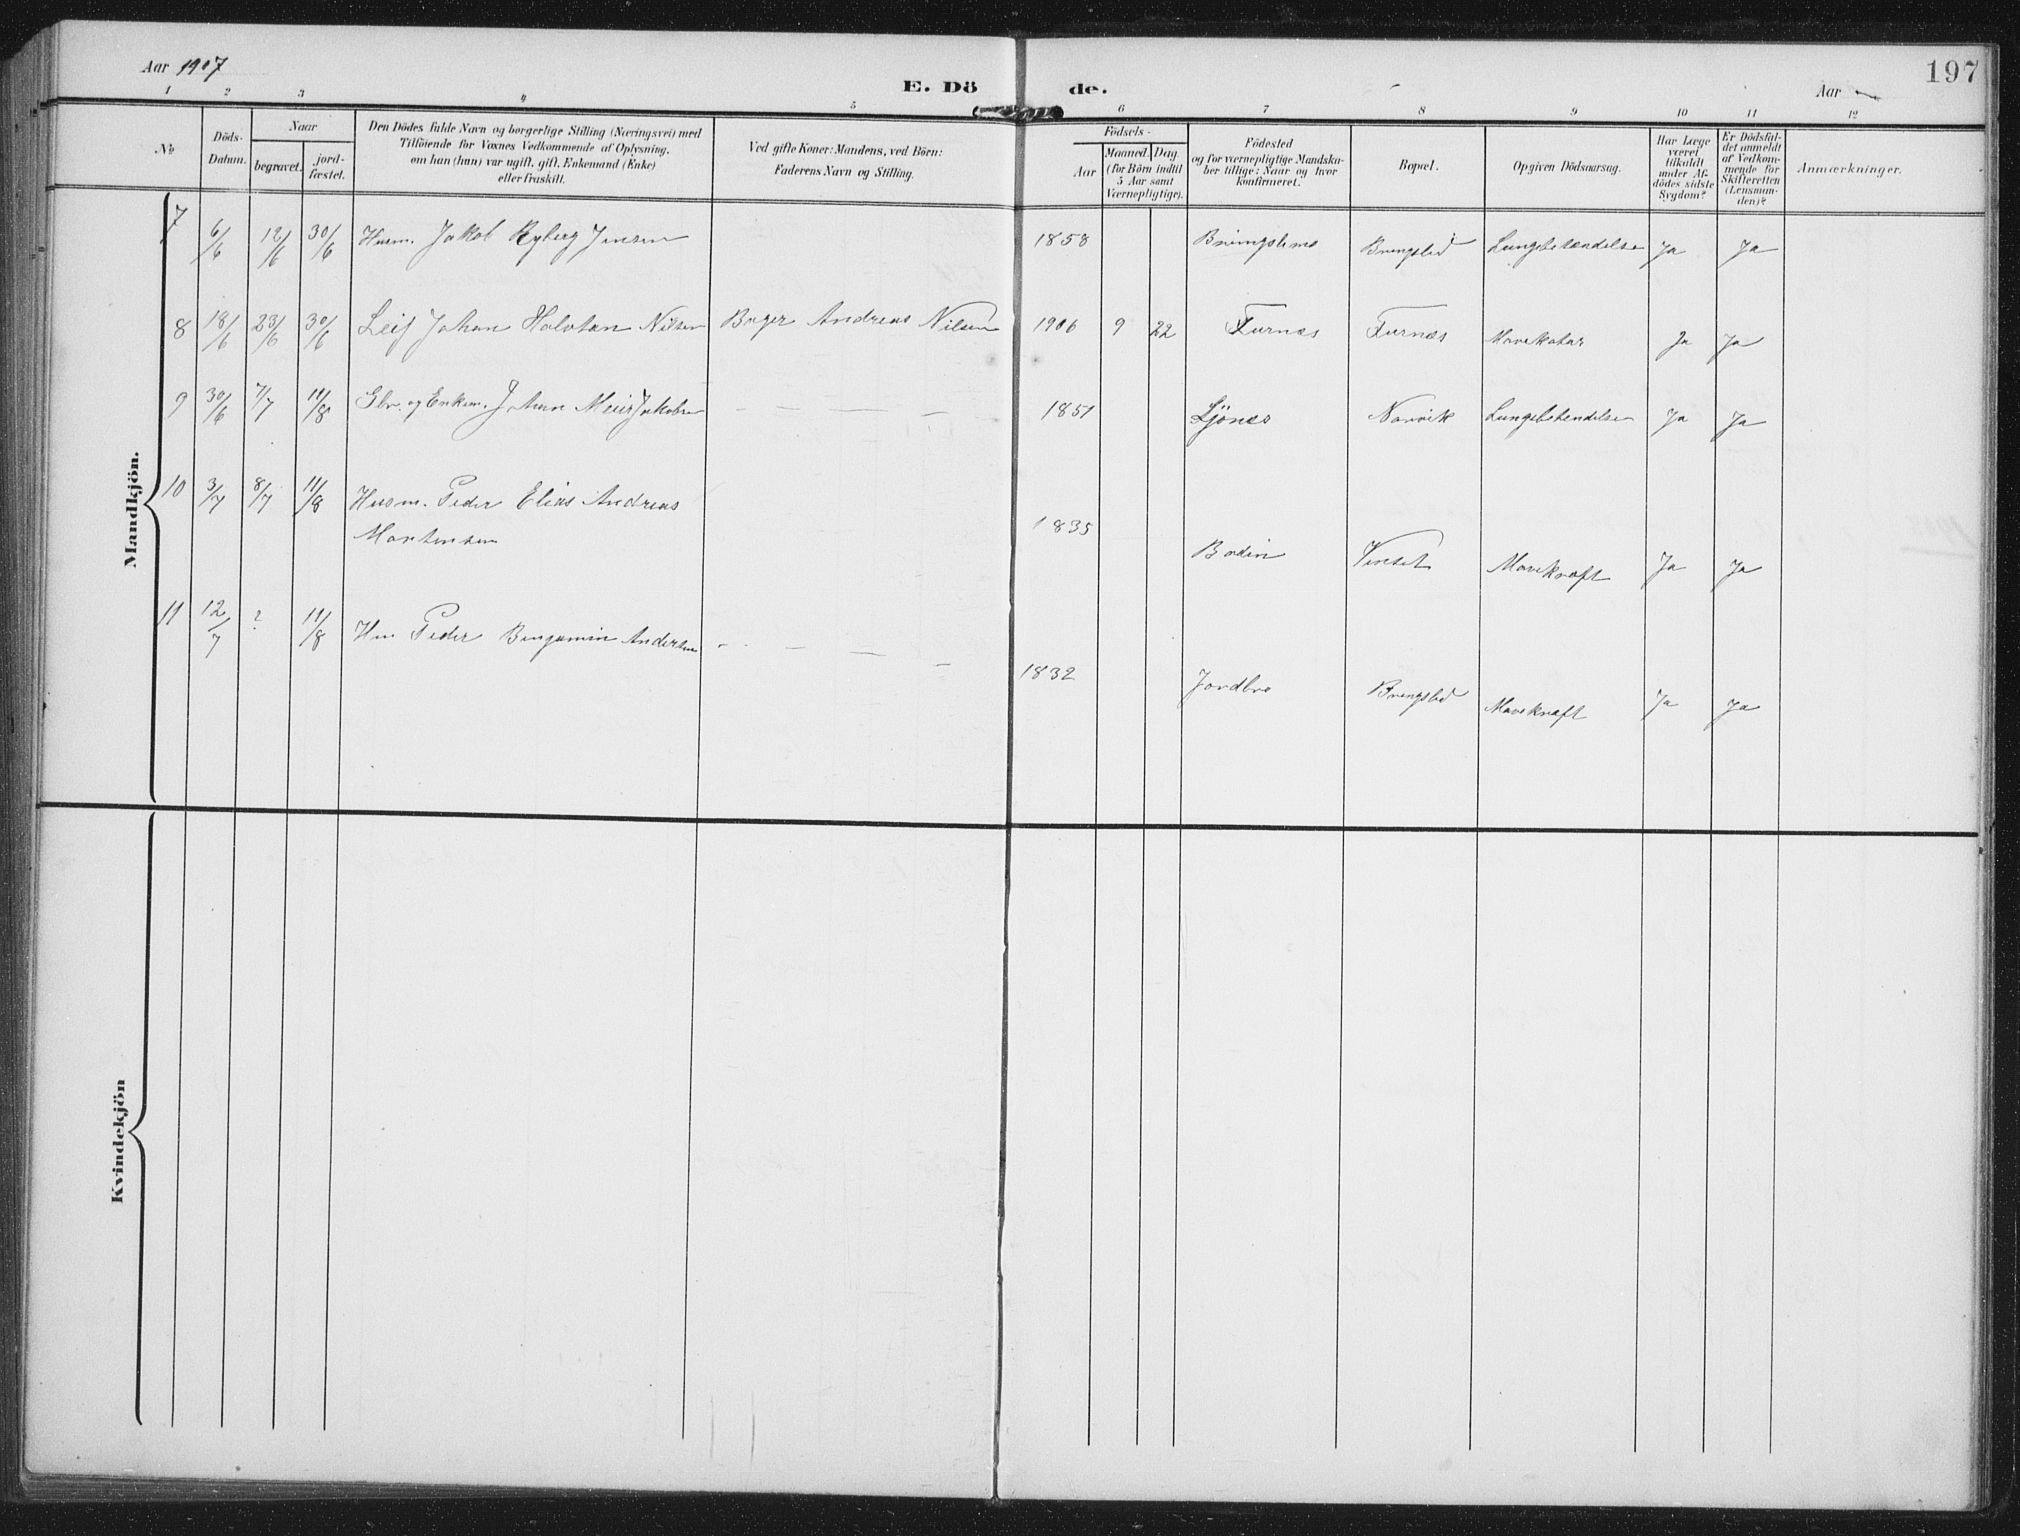 Aar 1907
E. Dö de.
Aar
197
1 2 3 4 5 6 7 8 9 10 11 12
№
Döds-
Datum.
Naar
begravet.
jord-
fæstet.
Den Dödes fulde Navn og borgerlige Stilling (Næringsvei) med
Tilföiende for Voxnes Vedkommende af Oplysning,
om han (hun) var ugift, gift, Enkemand (Enke)
eller fraskilt.
Ved gifte Koner: Mandens, ved Börn:
Faderens Navn og Stilling.
Födsels-
Aar
Maaned. Dag.
(for Börn indtil
5 Aar samt
Værnepligtige).
Födested
og for værnepligtige Mandska-
ber tillige: Naar og hvor
konfirmeret.
Bopæl.
Opgiven Dödsaarsag.
Har Læge
været
tilkaldt
under Af-
dödes sidste
Sygdom?
Er Dödsfal-
det anmeldt
af Vedkom-
mende for
Skifteretten
(Lensman-
den)?
Anmærkninger.
Mandkjön.
7 6/6 12/6 30/6 Husm. Jakob Ryberg Jensen 1858 Bringslimo Bringsli Lungebetændelse Ja Ja
8 18/6 23/6 30/6 Leif Johan Halvtan Nilsen Birger Andreas Nilsen 1906 9 22 Furnes Furnæs Mavekatar Ja Ja
9 30/6 7/7 11/8 Gbr. og Enkem. Johan Meier Jakobsen — — — — 1851 Ljönes Narvik Lungebetendelse Ja Ja
10 3/7 8/7 11/8 Husm. Peder Elias Andreas
Mortensen 1835 Bodin Venset Mavekræft Ja Ja
11 12/7 ? 11/8 Hm Peder Benjamin Andersen — — — — 1832 Jordbro Bringsli Mavekræft Ja Ja
Kvindekjön